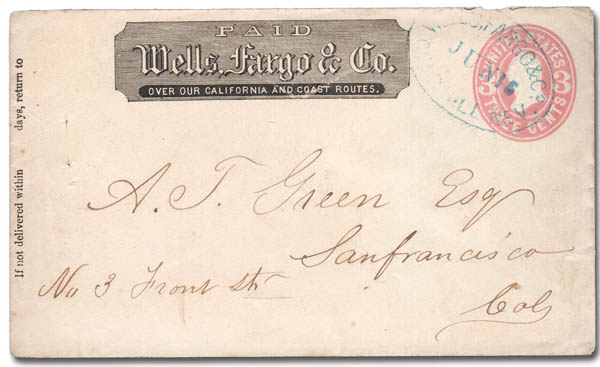 PAID
Wells, Fargo & Co.
OVER OUR CALIFORNIA AND COAST ROUTES.
WELLS, FARGO & CO.
JUN 16
UNITED STATES
THREE CENTS
If not delivered within days, return to
A. T. Green Esq
Sanfrancisco
No 3 Front Str
Cal